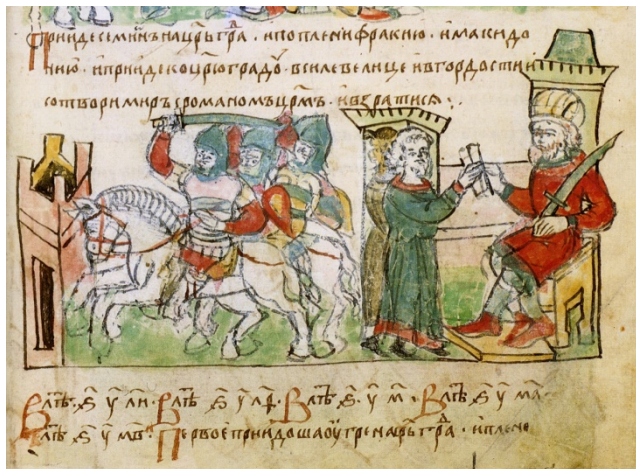 Прииде семиѡнъ на цр҃ьграⷣ. и поплени фракию. и макидо
нию. и прииде ко цр҃юградоу. в силе велице и в гордости и
сотвори миръ с романомъ цр҃мъ. и взвратися:
В лѣтⷪ. ѕ҃ у҃ ли. В лѣтⷪ ѕ҃ у҃ лѳ. В лѣтⷪ. ѕ҃. у҃ м. В лѣтⷪ ѕ҃ у҃ ма.
В лѣтⷪ ѕ҃ у҃ мв. Первое приидоша оугре на цр҃ьграⷣ. и плено